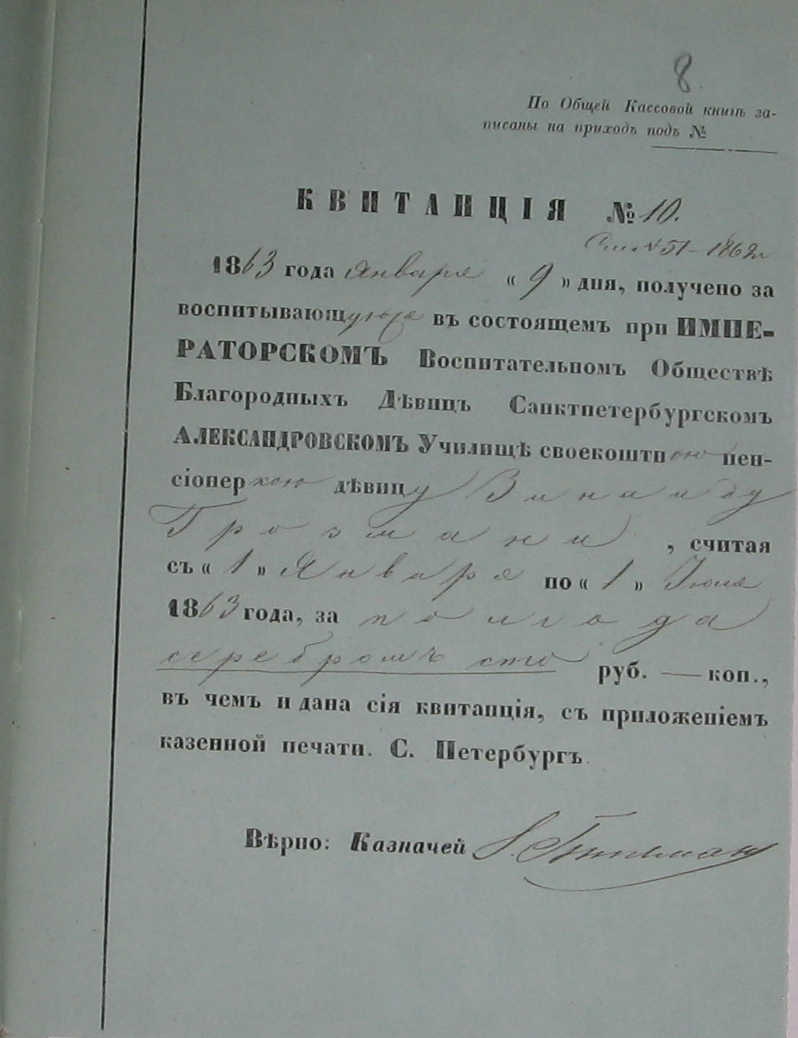 8
По Общей Кассовой книгѣ за-
писаны на приходъ подъ №
КВИТАНЦІЯ № 10.
№ 51 - 1862 г.
1863 года Января « 9 » дня, получено за
воспитывающуюся въ состоящемъ при ИМПЕ-
РАТОРСКОМЪ Воспитательномъ Обществѣ
Благородныхъ Дѣвицъ Санктпетербургскомъ
АЛЕКСАНДРОВСКОМЪ Училищѣ своекоштною пен-
сіонеркою дѣвицу Зинаиду
, считая
съ « 1 » Января по « 1 » Іюля
1863 года, за полгода
серебромъ сто руб. — коп.,
въ чемъ и дана сія квитанція, съ приложеніемъ
казенной печати. С. Петербургъ.
Вѣрно: Казначей